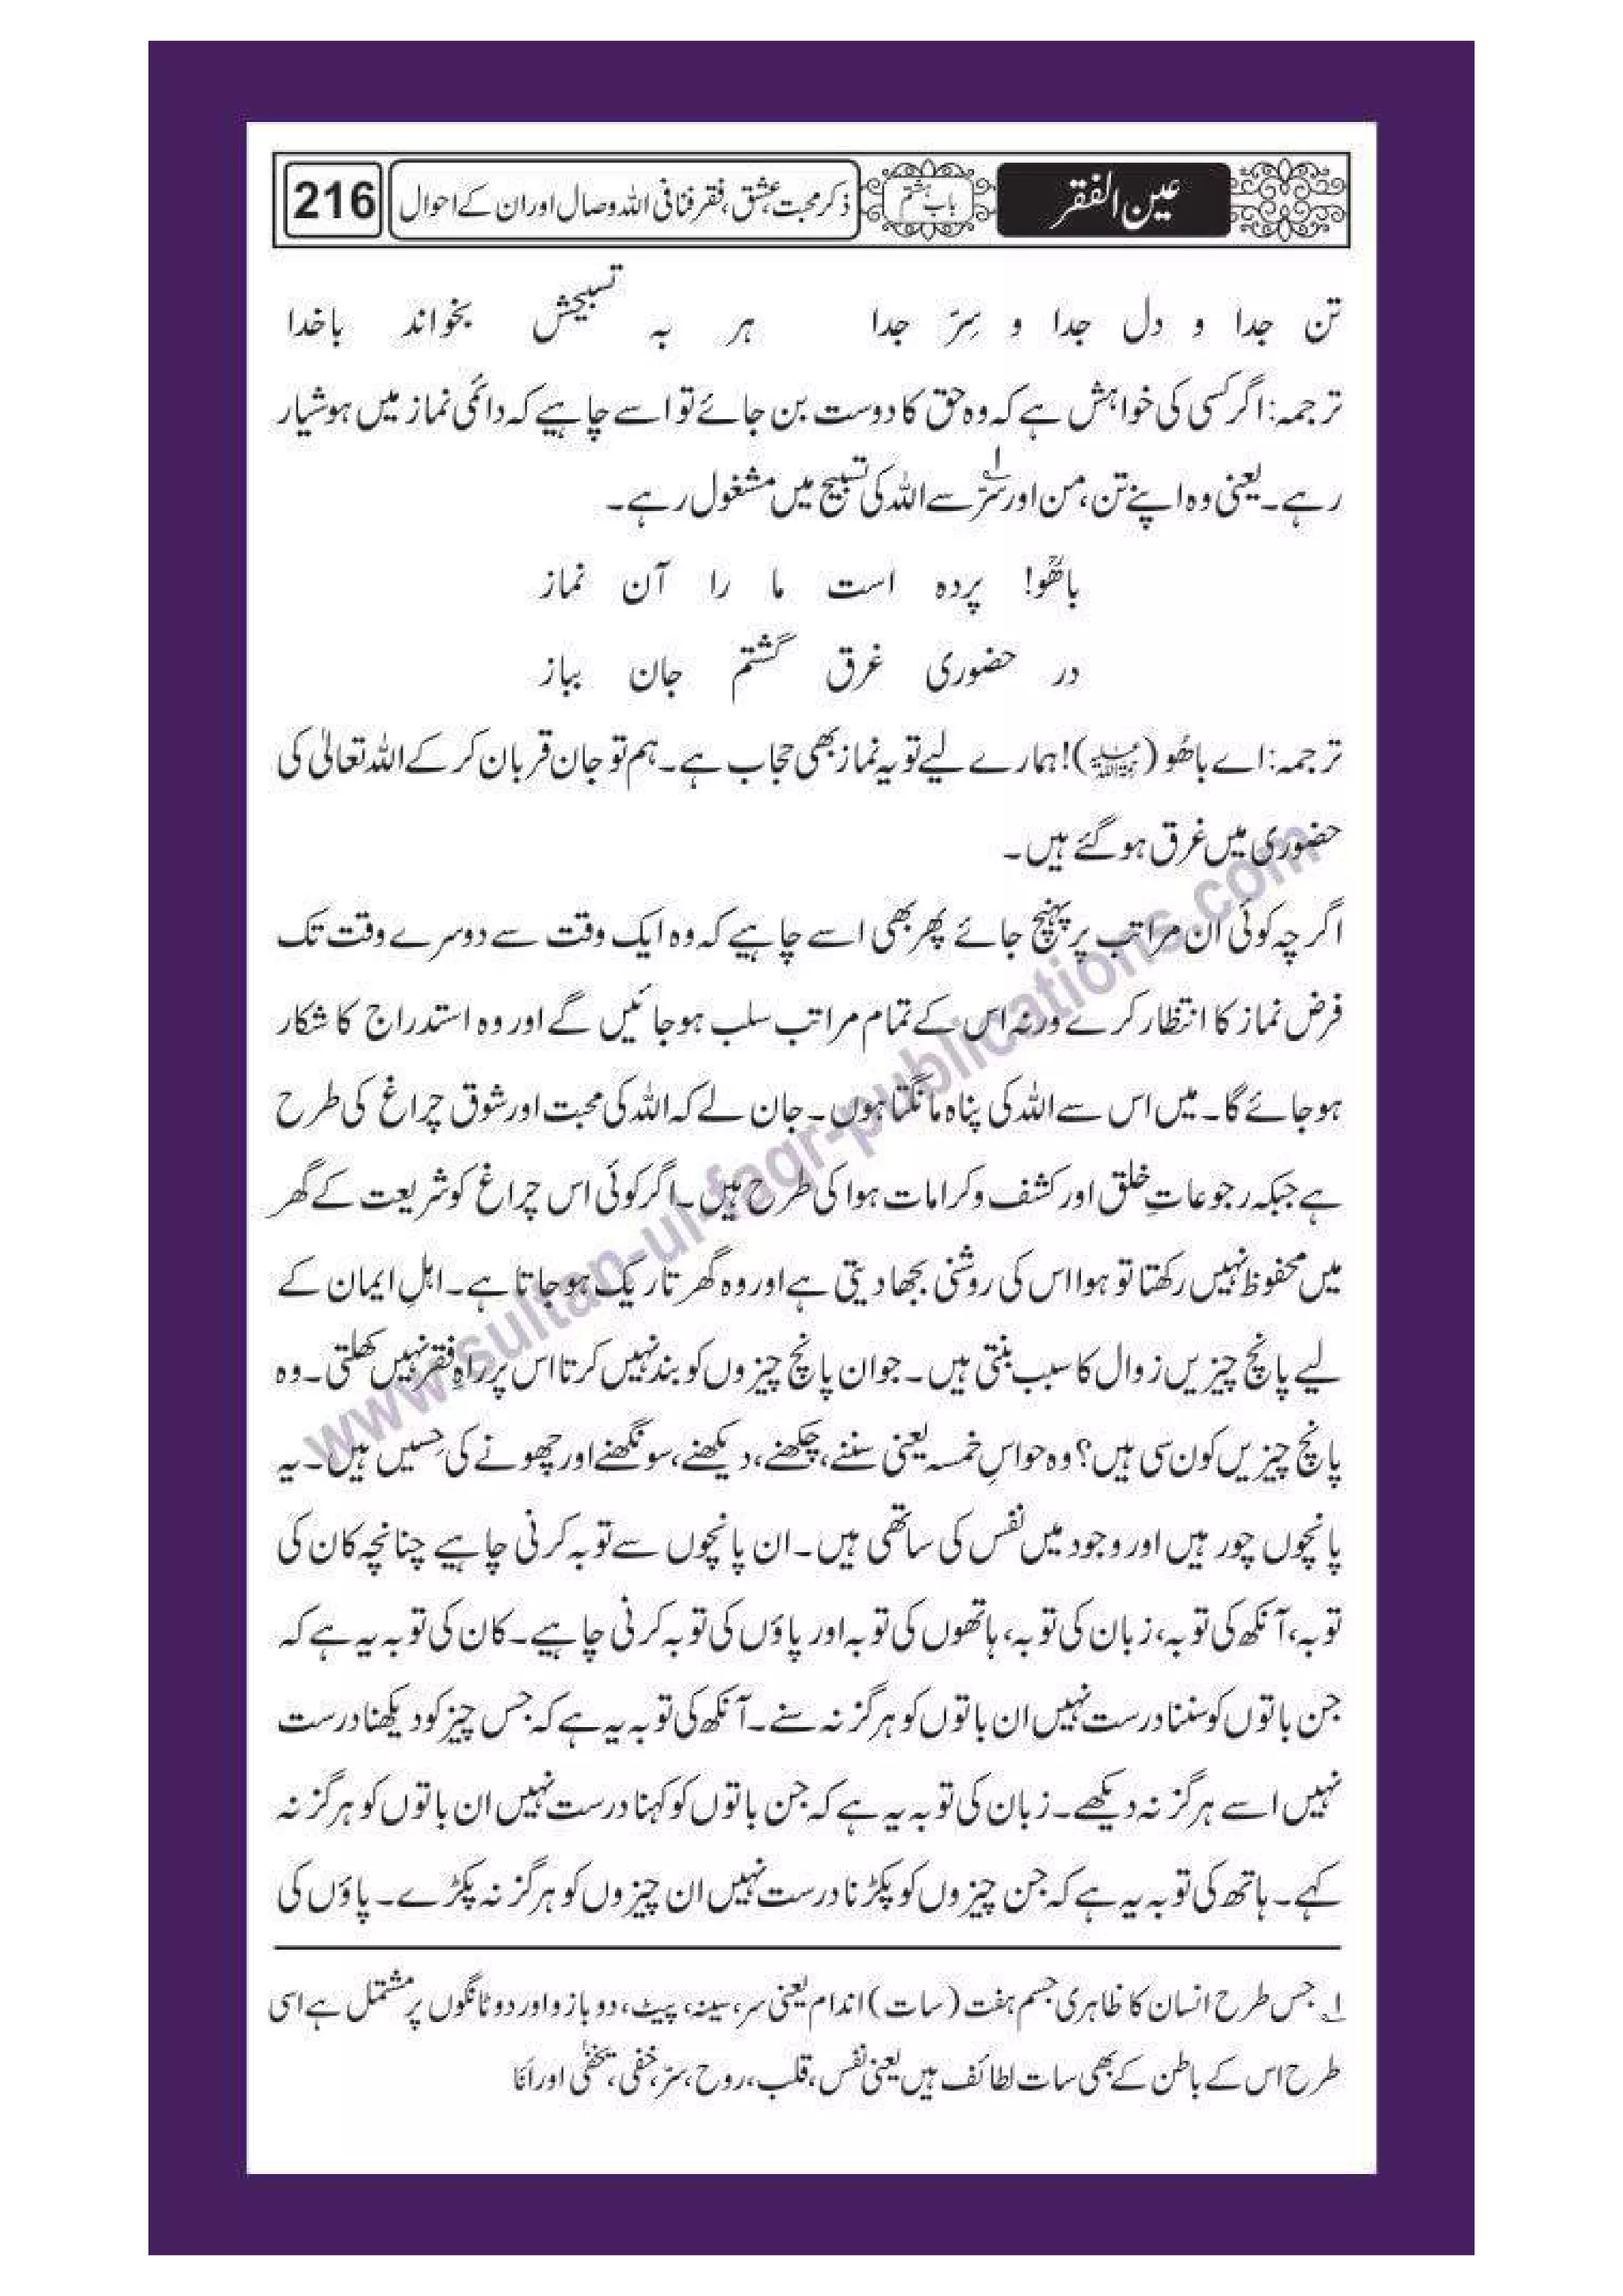 عین الفقر باب ہشتم ذکر محبت، عشق، فقر فنافی اللہ وصال اور ان کے احوال 216
تن جدا و دل جدا و سِرّ جدا ہر بہ تسبیحش بخواند باخدا
ترجمہ: اگر کسی کی خواہش ہے کہ وہ حق کا دوست بن جائے تو اسے چاہیے کہ دائمی نماز میں ہوشیار
رہے۔ یعنی وہ اپنے تن، من اور سِرّ۱ سے اللہ کی تسبیح میں مشغول رہے۔
باھُو! پردہ است ما را آن نماز
در حضوری غرق گشتم جان بباز
ترجمہ: اے باھُو (رحمۃ اللہ علیہ)! ہمارے لیے تو یہ نماز بھی حجاب ہے۔ ہم تو جان قربان کر کے اللہ تعالیٰ کی
حضوری میں غرق ہو گئے ہیں۔
اگرچہ کوئی ان مراتب پر پہنچ جائے پھر بھی اسے چاہیے کہ وہ ایک وقت سے دوسرے وقت تک
فرض نماز کا انتظار کرے ورنہ اس کے تمام مراتب سلب ہو جائیں گے اور وہ استدراج کا شکار
ہو جائے گا۔ میں اس سے اللہ کی پناہ مانگتا ہوں۔ جان لے کہ اللہ کی محبت اور شوق چراغ کی طرح
ہے جبکہ رجوعاتِ خلق اور کشف و کرامات ہوا کی طرح ہیں۔ اگر کوئی اس چراغ کو شریعت کے گھر
میں محفوظ نہیں رکھتا تو ہوا اس کی روشنی بجھا دیتی ہے اور وہ گھر تاریک ہو جاتا ہے۔ اہلِ ایمان کے
لیے پانچ چیزیں زوال کا سبب بنتی ہیں۔ جو ان پانچ چیزوں کو بند نہیں کرتا اس پر راہِ فقر نہیں کھلتی۔ وہ
پانچ چیزیں کون سی ہیں؟ وہ حواسِ خمسہ یعنی سننے، چکھنے، دیکھنے، سونگھنے اور چھونے کی حسیں ہیں۔ یہ
پانچوں چور ہیں اور وجود میں نفس کی ساتھی ہیں۔ ان پانچوں سے توبہ کرنی چاہیے چنانچہ کان کی
توبہ، آنکھ کی توبہ، زبان کی توبہ، ہاتھوں کی توبہ اور پاؤں کی توبہ کرنی چاہیے۔ کان کی توبہ یہ ہے کہ
جن باتوں کو سننا درست نہیں ان باتوں کو ہرگز نہ سنے۔ آنکھ کی توبہ یہ ہے کہ جس چیز کو دیکھنا درست
نہیں اسے ہرگز نہ دیکھے۔ زبان کی توبہ یہ ہے کہ جن باتوں کو کہنا درست نہیں ان باتوں کو ہرگز نہ
کہے۔ ہاتھ کی توبہ یہ ہے کہ جن چیزوں کو پکڑنا درست نہیں ان چیزوں کو ہرگز نہ پکڑے۔ پاؤں کی
۱۔ جس طرح انسان کا ظاہری جسم ہفت (سات) اندام یعنی سر، سینہ، پیٹ، دو بازو اور دو ٹانگوں پر مشتمل ہے اسی
طرح اس کے باطن کے بھی سات لطائف ہیں یعنی نفس، قلب، روح، سِرّ، خفی، یخفیٰ اور اَنَا
www.sultan-ul-faqr-publications.com